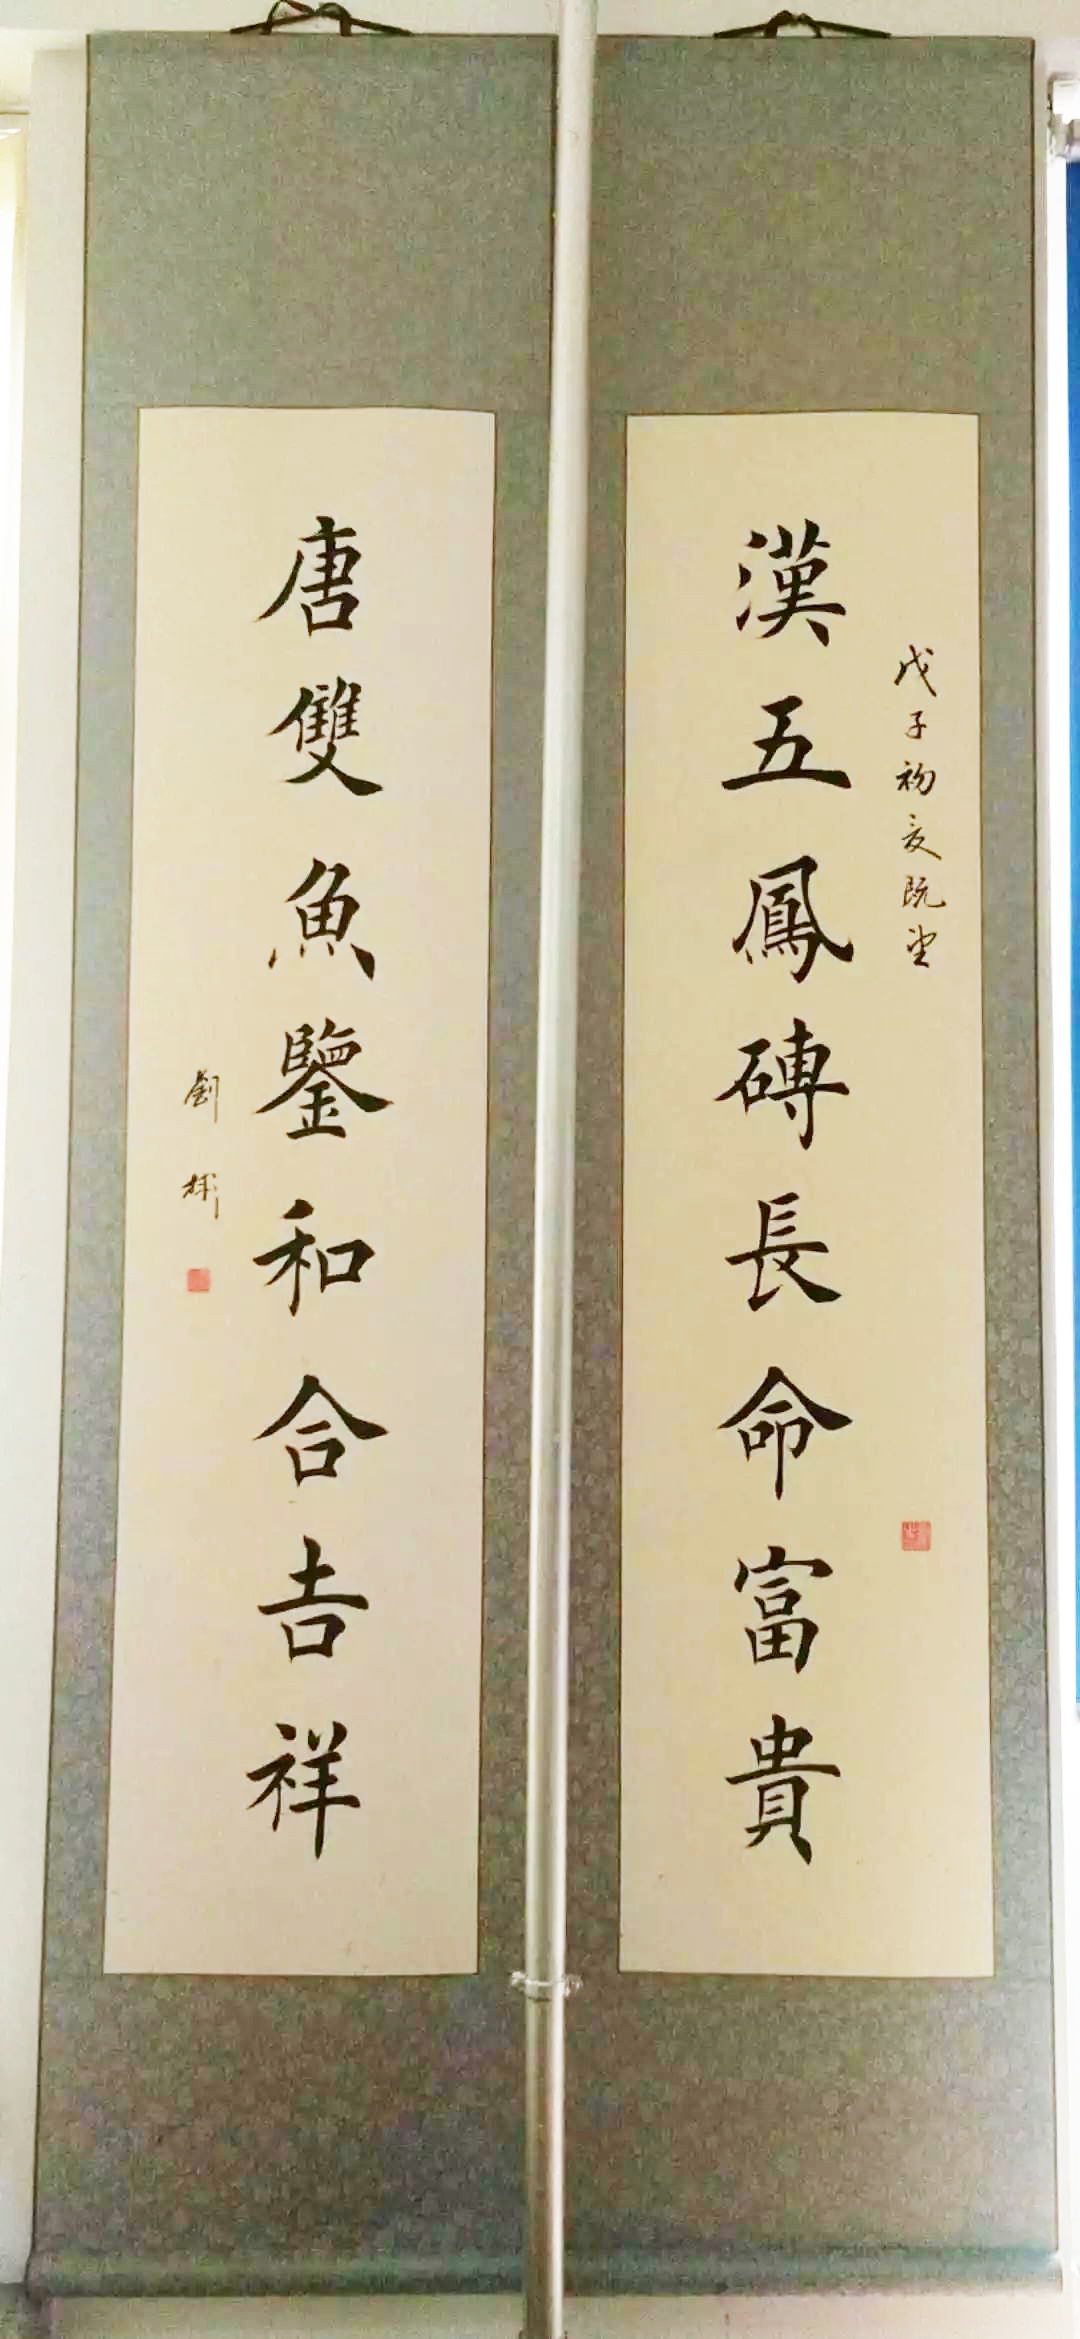 戊子初夏既望
漢五鳳磚長命富貴
唐雙魚鑒和合吉祥
劉輝